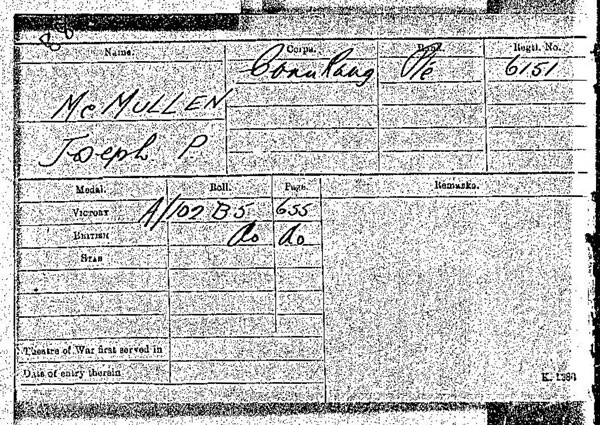 Name. Corps. Rank. Regtl. No.
Conn Rang Pte 6151
McMULLEN
Joseph P.
Medal. Roll. Page. Remarks.
VICTORY A/102 B5 655
BRITISH do do
STAR
Theatre of War first served in
Date of entry therein
K. 1380